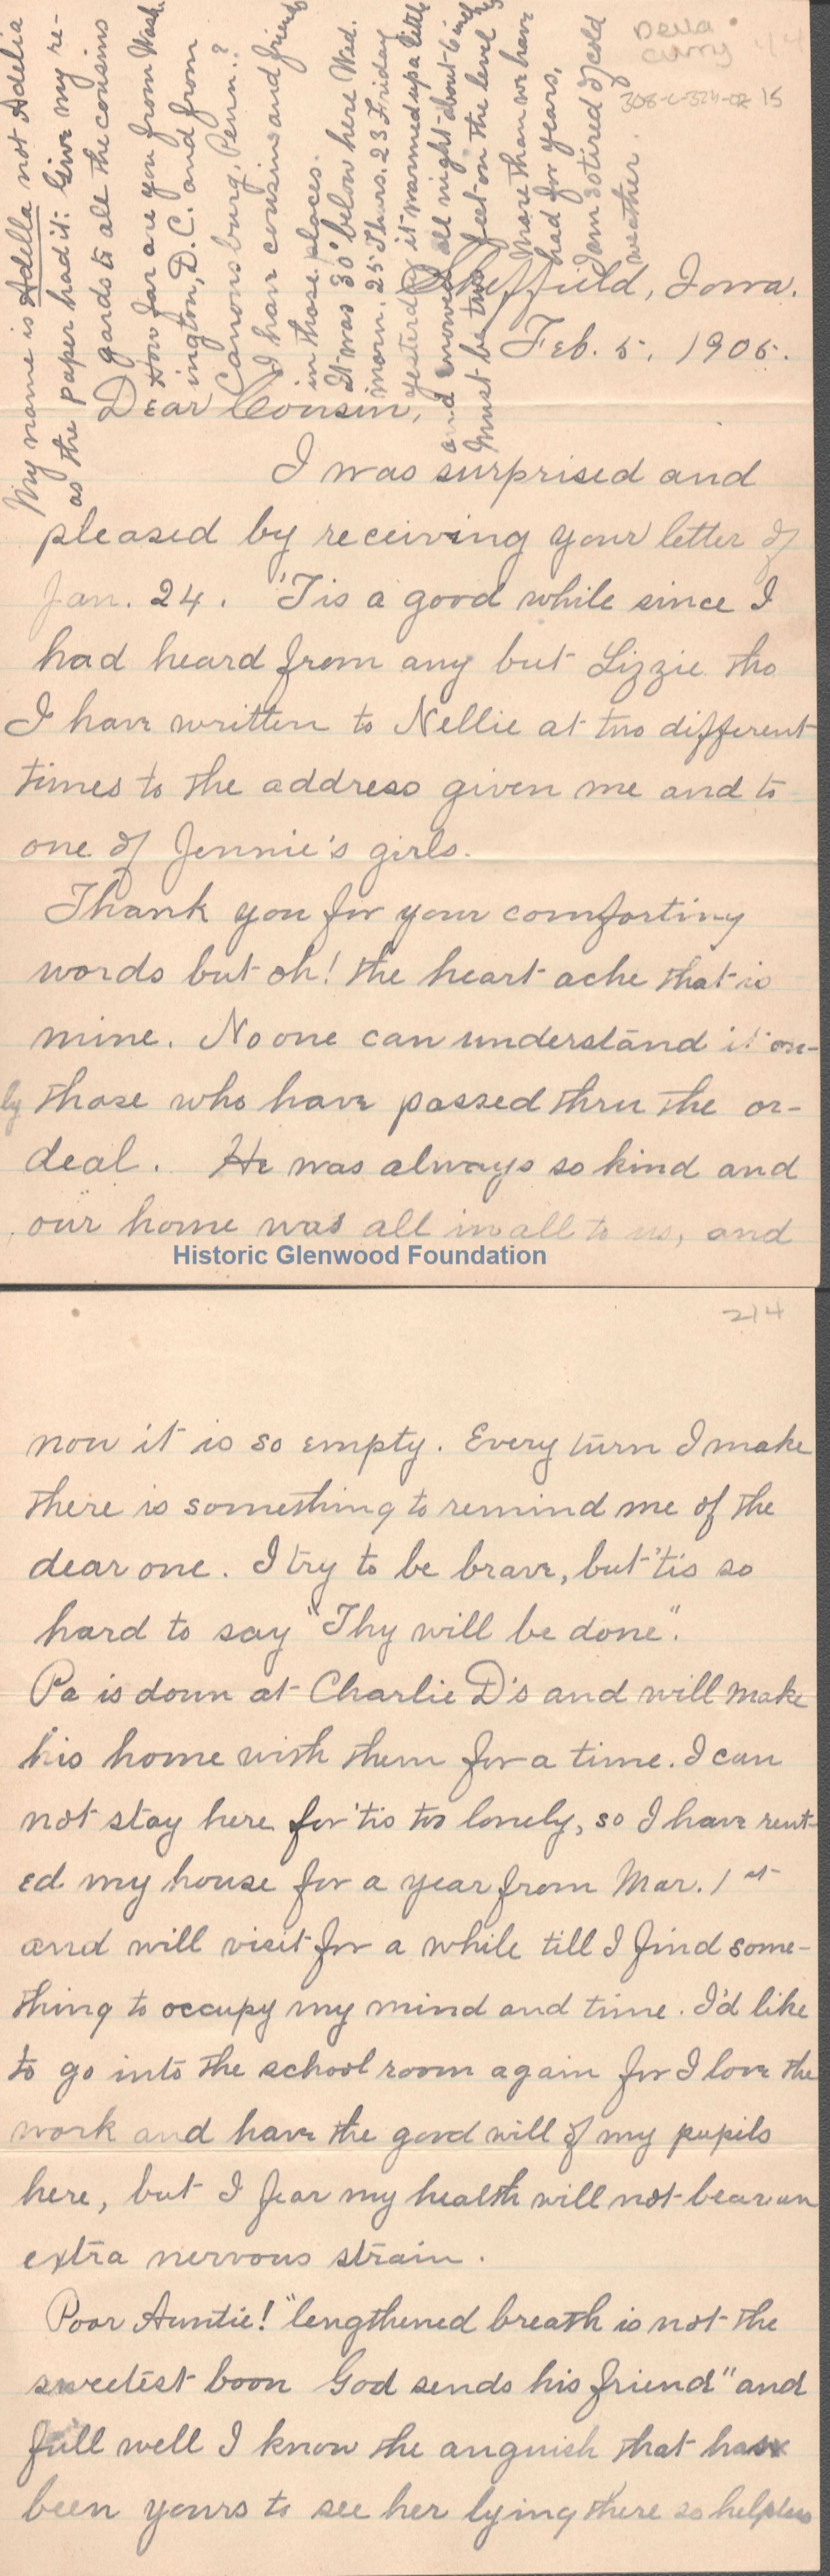 Della
Curry
1/4
308-C-324-02 15
My name is Adella not Adelia
as the paper had it. Give my re-
gards to all the cousins
How far are you from Wash-
ington, D.C. and from
Canonsburg, Penn.?
I have cousins and friends
in those places.
It was 30° below here Wed.
morn. 25 Thurs. 23 Friday
yesterday it warmed up a little
and snowed all night about 6 in
Must be two feet on the level
More than we have
had for years,
I am so tired of cold
weather.
Sheffield, Iowa.
Feb. 5, 1905.
Dear Cousin,
I was surprised and
pleased by receiving your letter of
Jan. 24. 'Tis a good while since I
had heard from any but Lizzie tho
I have written to Nellie at two different
times to the address given me and to
one of Jennie's girls.
Thank you for your comforting
words but oh! the heart ache that is
mine. No one can understand it on-
ly those who have passed thru the or-
deal. He was always so kind and
our home was all in all to us, and
Historic Glenwood Foundation
2/4
now it is so empty. Every turn I make
there is something to remind me of the
dear one. I try to be brave, but 'tis so
hard to say "Thy will be done".
Pa is down at Charlie D's and will make
his home with them for a time. I can
not stay here for 'tis too lonely, so I have rent-
ed my house for a year from Mar. 1st
and will visit for a while till I find some-
thing to occupy my mind and time. I'd like
to go into the school room again for I love the
work and have the good will of my pupils
here, but I fear my health will not bear an
extra nervous strain.
Poor Auntie! "lengthened breath is not the
sweetest boon God sends his friend" and
full well I know the anguish that has
been yours to see her lying there so helpless